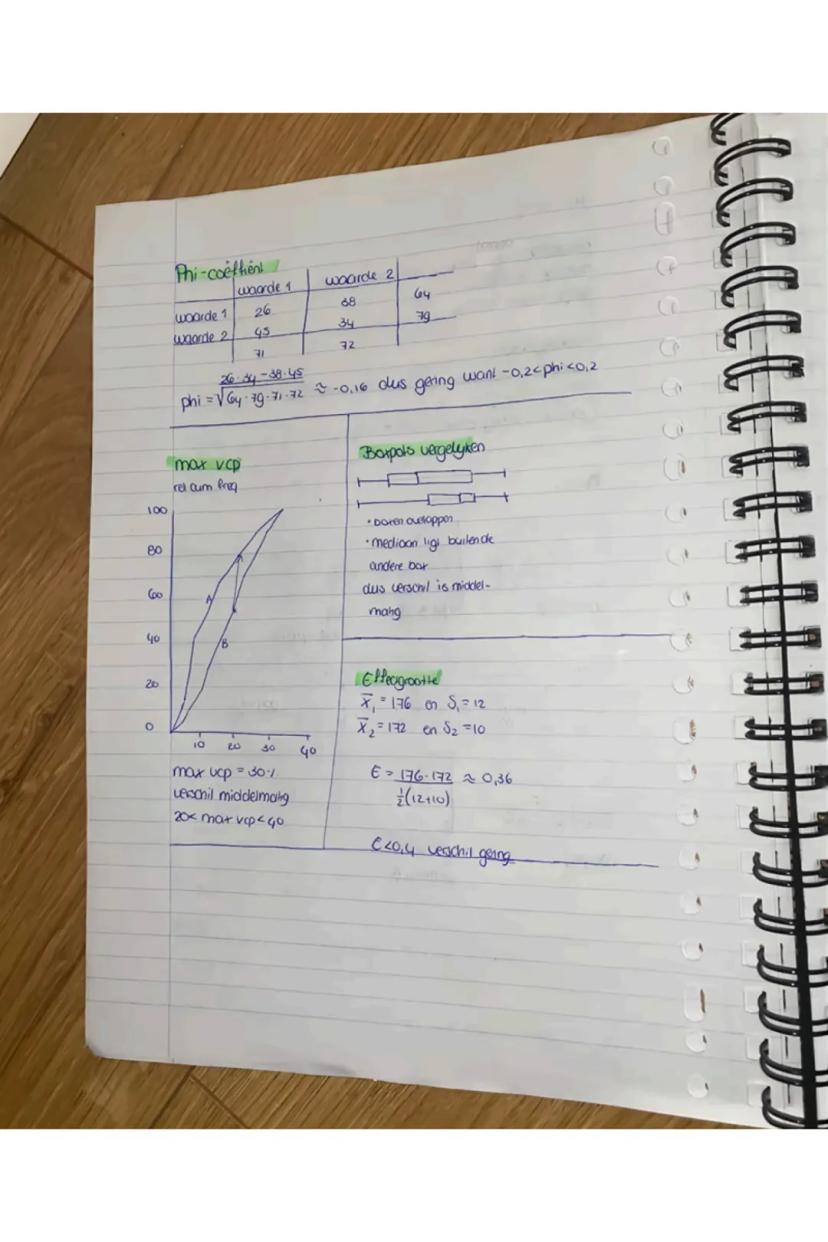 Phi-coëfficiënt
waarde 1 waarde 2
waarde 1 26 38 64
waarde 2 45 34 79
71 72
26·34-38·45
phi = √64·79·71·72 ≈ -0,16 dus gering want -0,2<phi<0,2
max vcp
rel cum freq
100
80
60
40
20
0
A
B
10 20 30 40
max vcp = 30%
verschil middelmatig
20< max vcp<40
Boxplots vergelijken
• boxen overlappen
• mediaan ligt buiten de
andere box
dus verschil is middel-
matig
Effectgrootte
X̄₁ = 176 en S₁ = 12
X̄₂ = 172 en S₂ = 10
E = 176-172 ≈ 0,36
½(12+10)
E<0,4 verschil gering